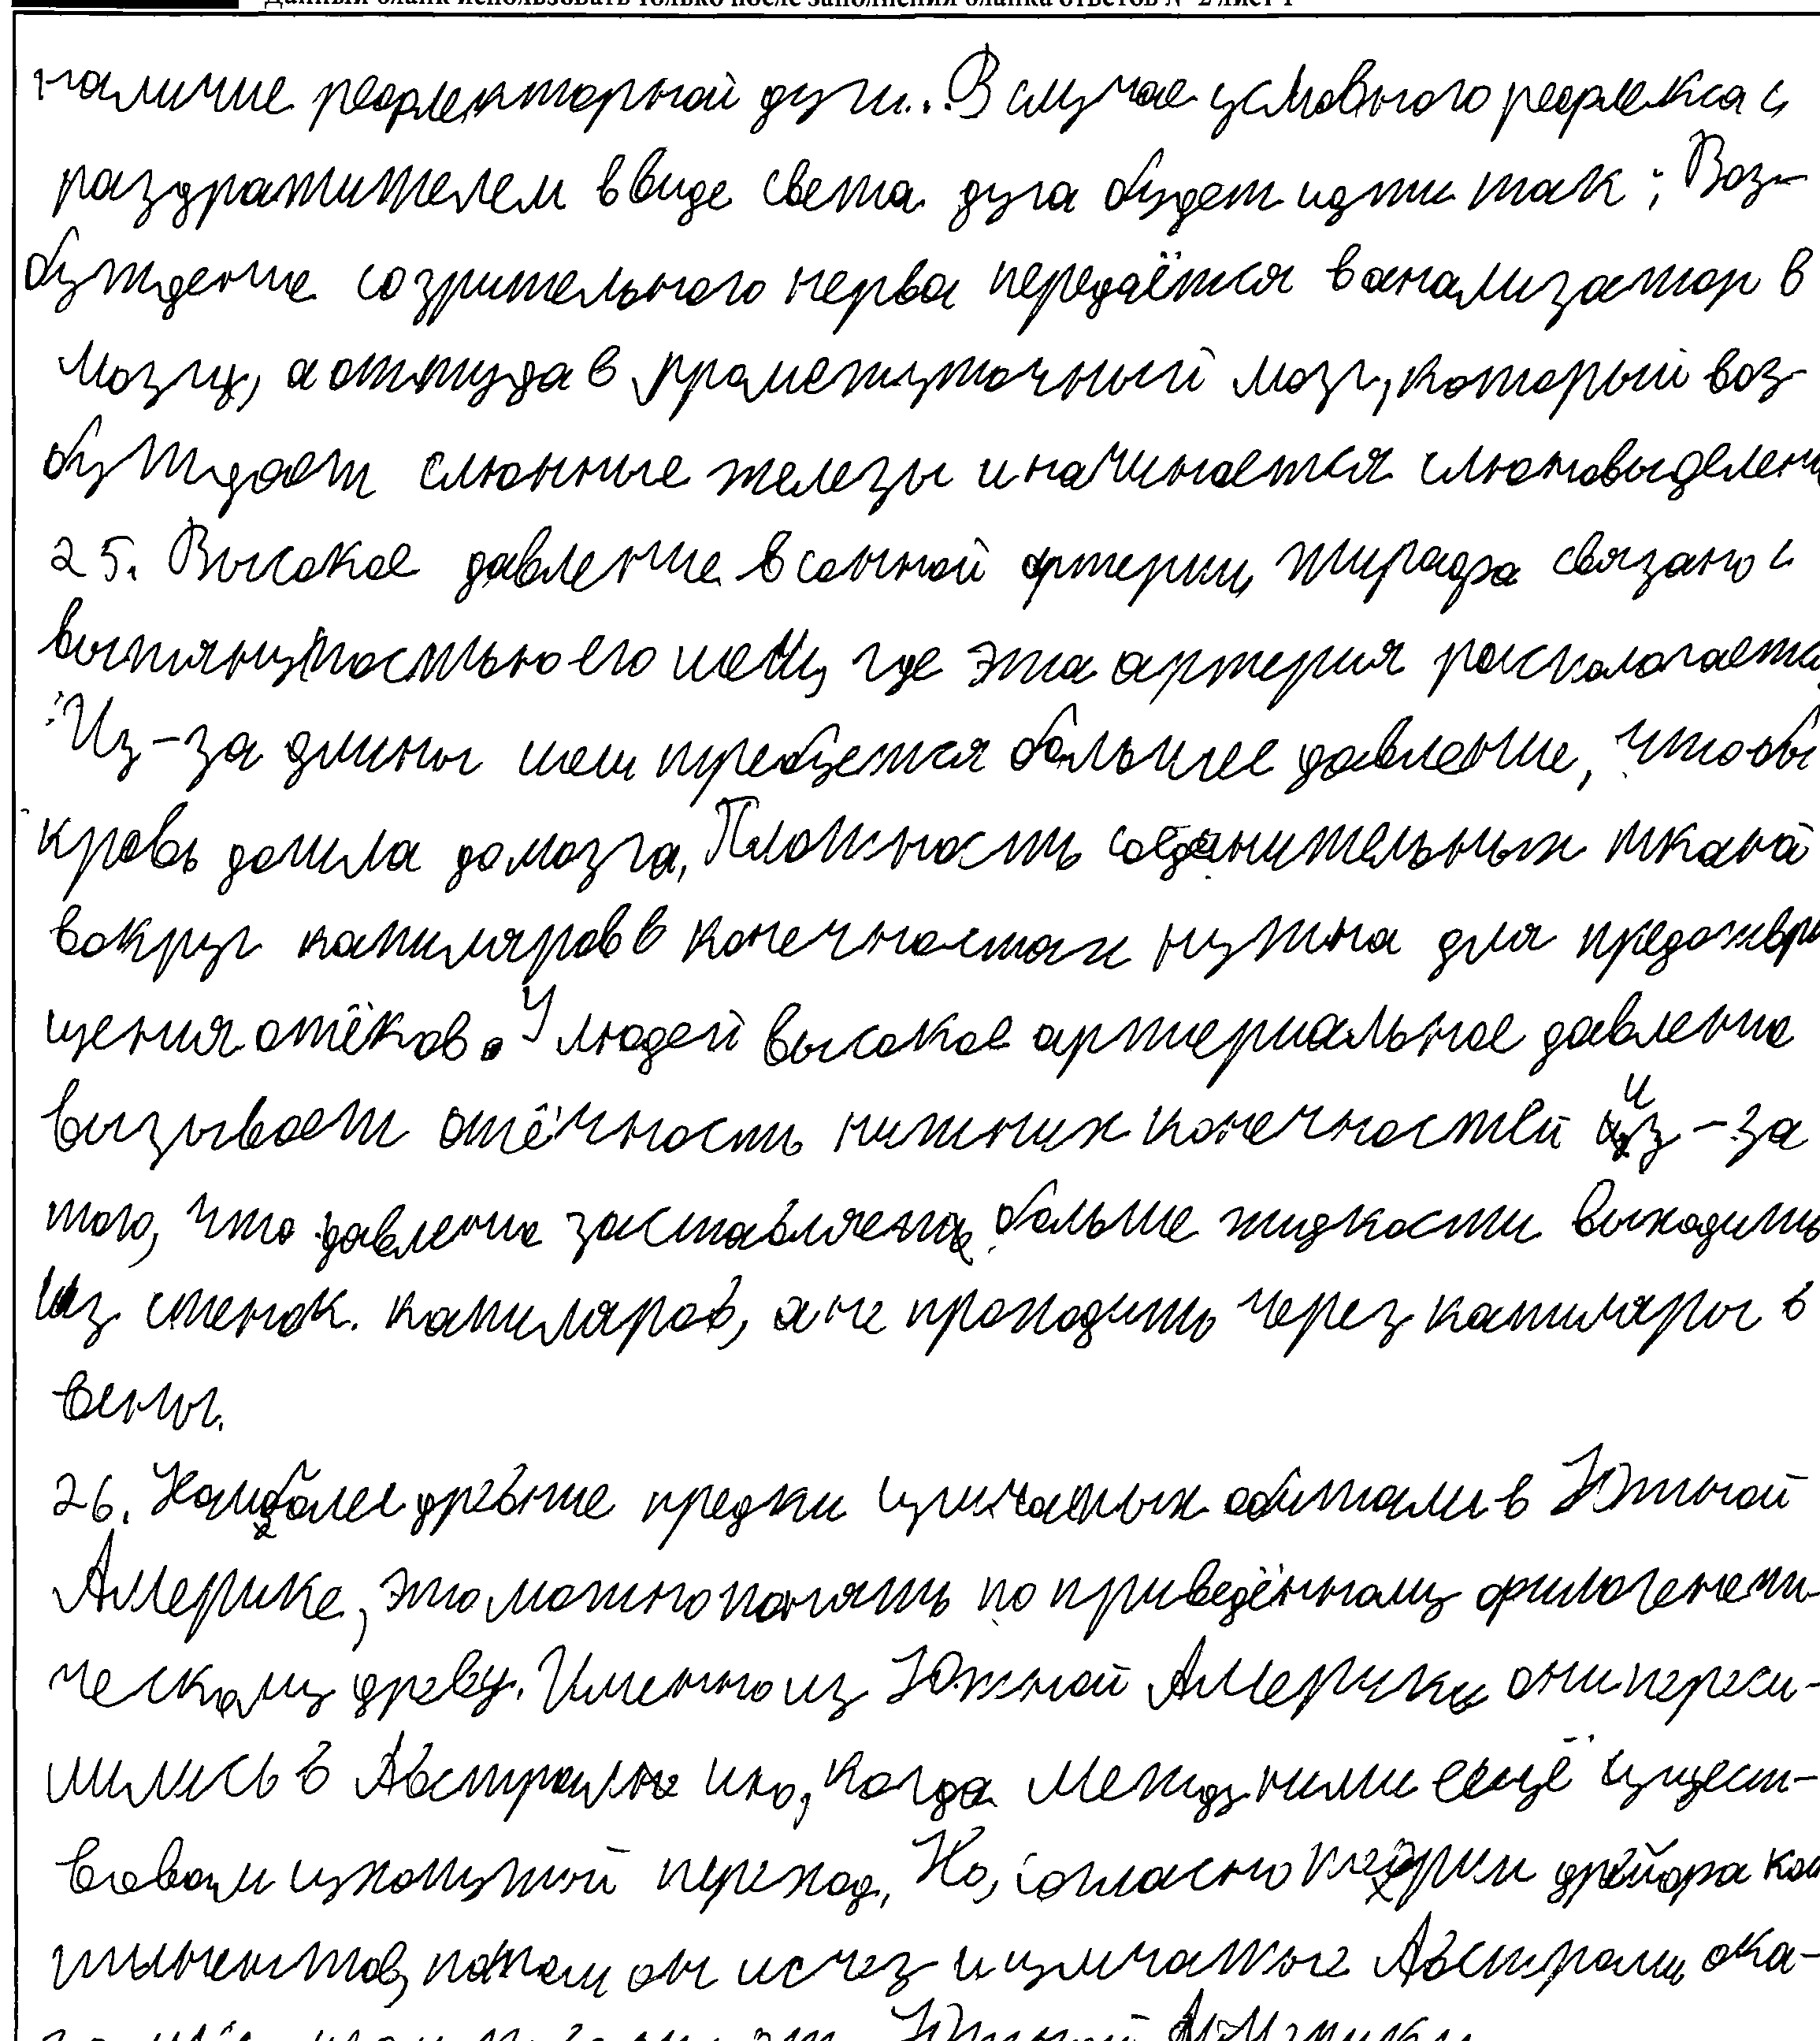 Данный бланк использовать только после заполнения бланка ответов № 2 лист 1
наличие рефлекторной дуги. В случае условного рефлекса с
раздражителем в виде света дуга будет идти так: Воз-
буждение со зрительного нерва передаётся в анализатор в
мозгу, а оттуда в промежуточный мозг, который воз-
буждает слюнные железы и начинается слюновыделени
25. Высокое давление в сонной артерии жирафа связано с
вытянутостью его шеи, где эта артерия располагаетс
Из-за длины шеи требуется большее давление, чтобы
кровь дошла до мозга. Плотность соединительных тканей
вокруг капиляров в конечностях нужна для предотвра
щения отёков. У людей высокое артериальное давление
вызывает отёчность нижних конечностей из-за
того, что давление заставляет больше жидкости выходить
из стенок капиляров, а не проходить через капиляры в
вены.
26. Наиболее древние предки сумчатых обитали в Южной
Америке, это можно понять по приведённому филогенети-
ческому древу. Именно из Южной Америки они пересе-
лились в Австралию, когда между ними ещё сущест-
вовал сухопутный переход. Но, согласно теории дрейфа кон
тинентов, потом он исчез и сумчатые Австралии ока-
Южной Америки